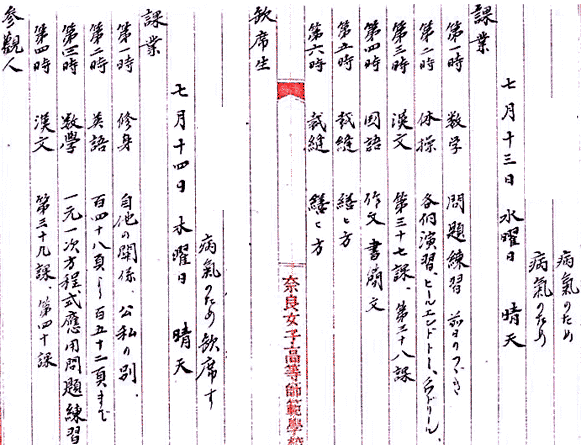 病氣のため
病氣のため
七月十三日 水曜日 晴天
課業
第一時 数学 問題練習 前日のつゞき
第二時 体操 各個演習、ヒールエンドトー、
第三時 漢文 第三十七課、第三十八課
第四時 国語 作文 書簡文
第五時 裁縫 繕ヒ方
第六時 裁縫 繕ヒ方
奈良女子高等師範學校
缺席生
病氣のため缺席す
七月十四日 木曜日 晴天
課業
第一時 修身 自他の関係、公私の別.
第二時 英語 百四十八頁より百五十二頁まで
第三時 数學 一元一次方程式應用問題練習
第四時 漢文 第三十九課、第四十課
参觀人